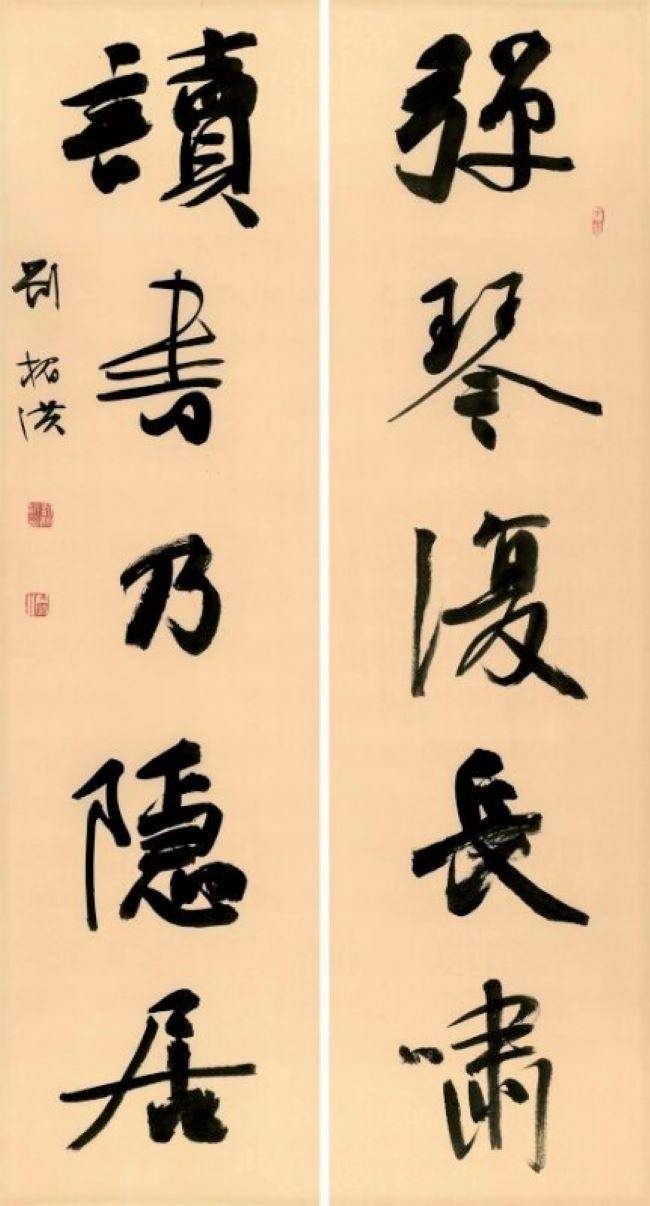 彈琴復長嘯
讀書乃隱居
劉楷洪